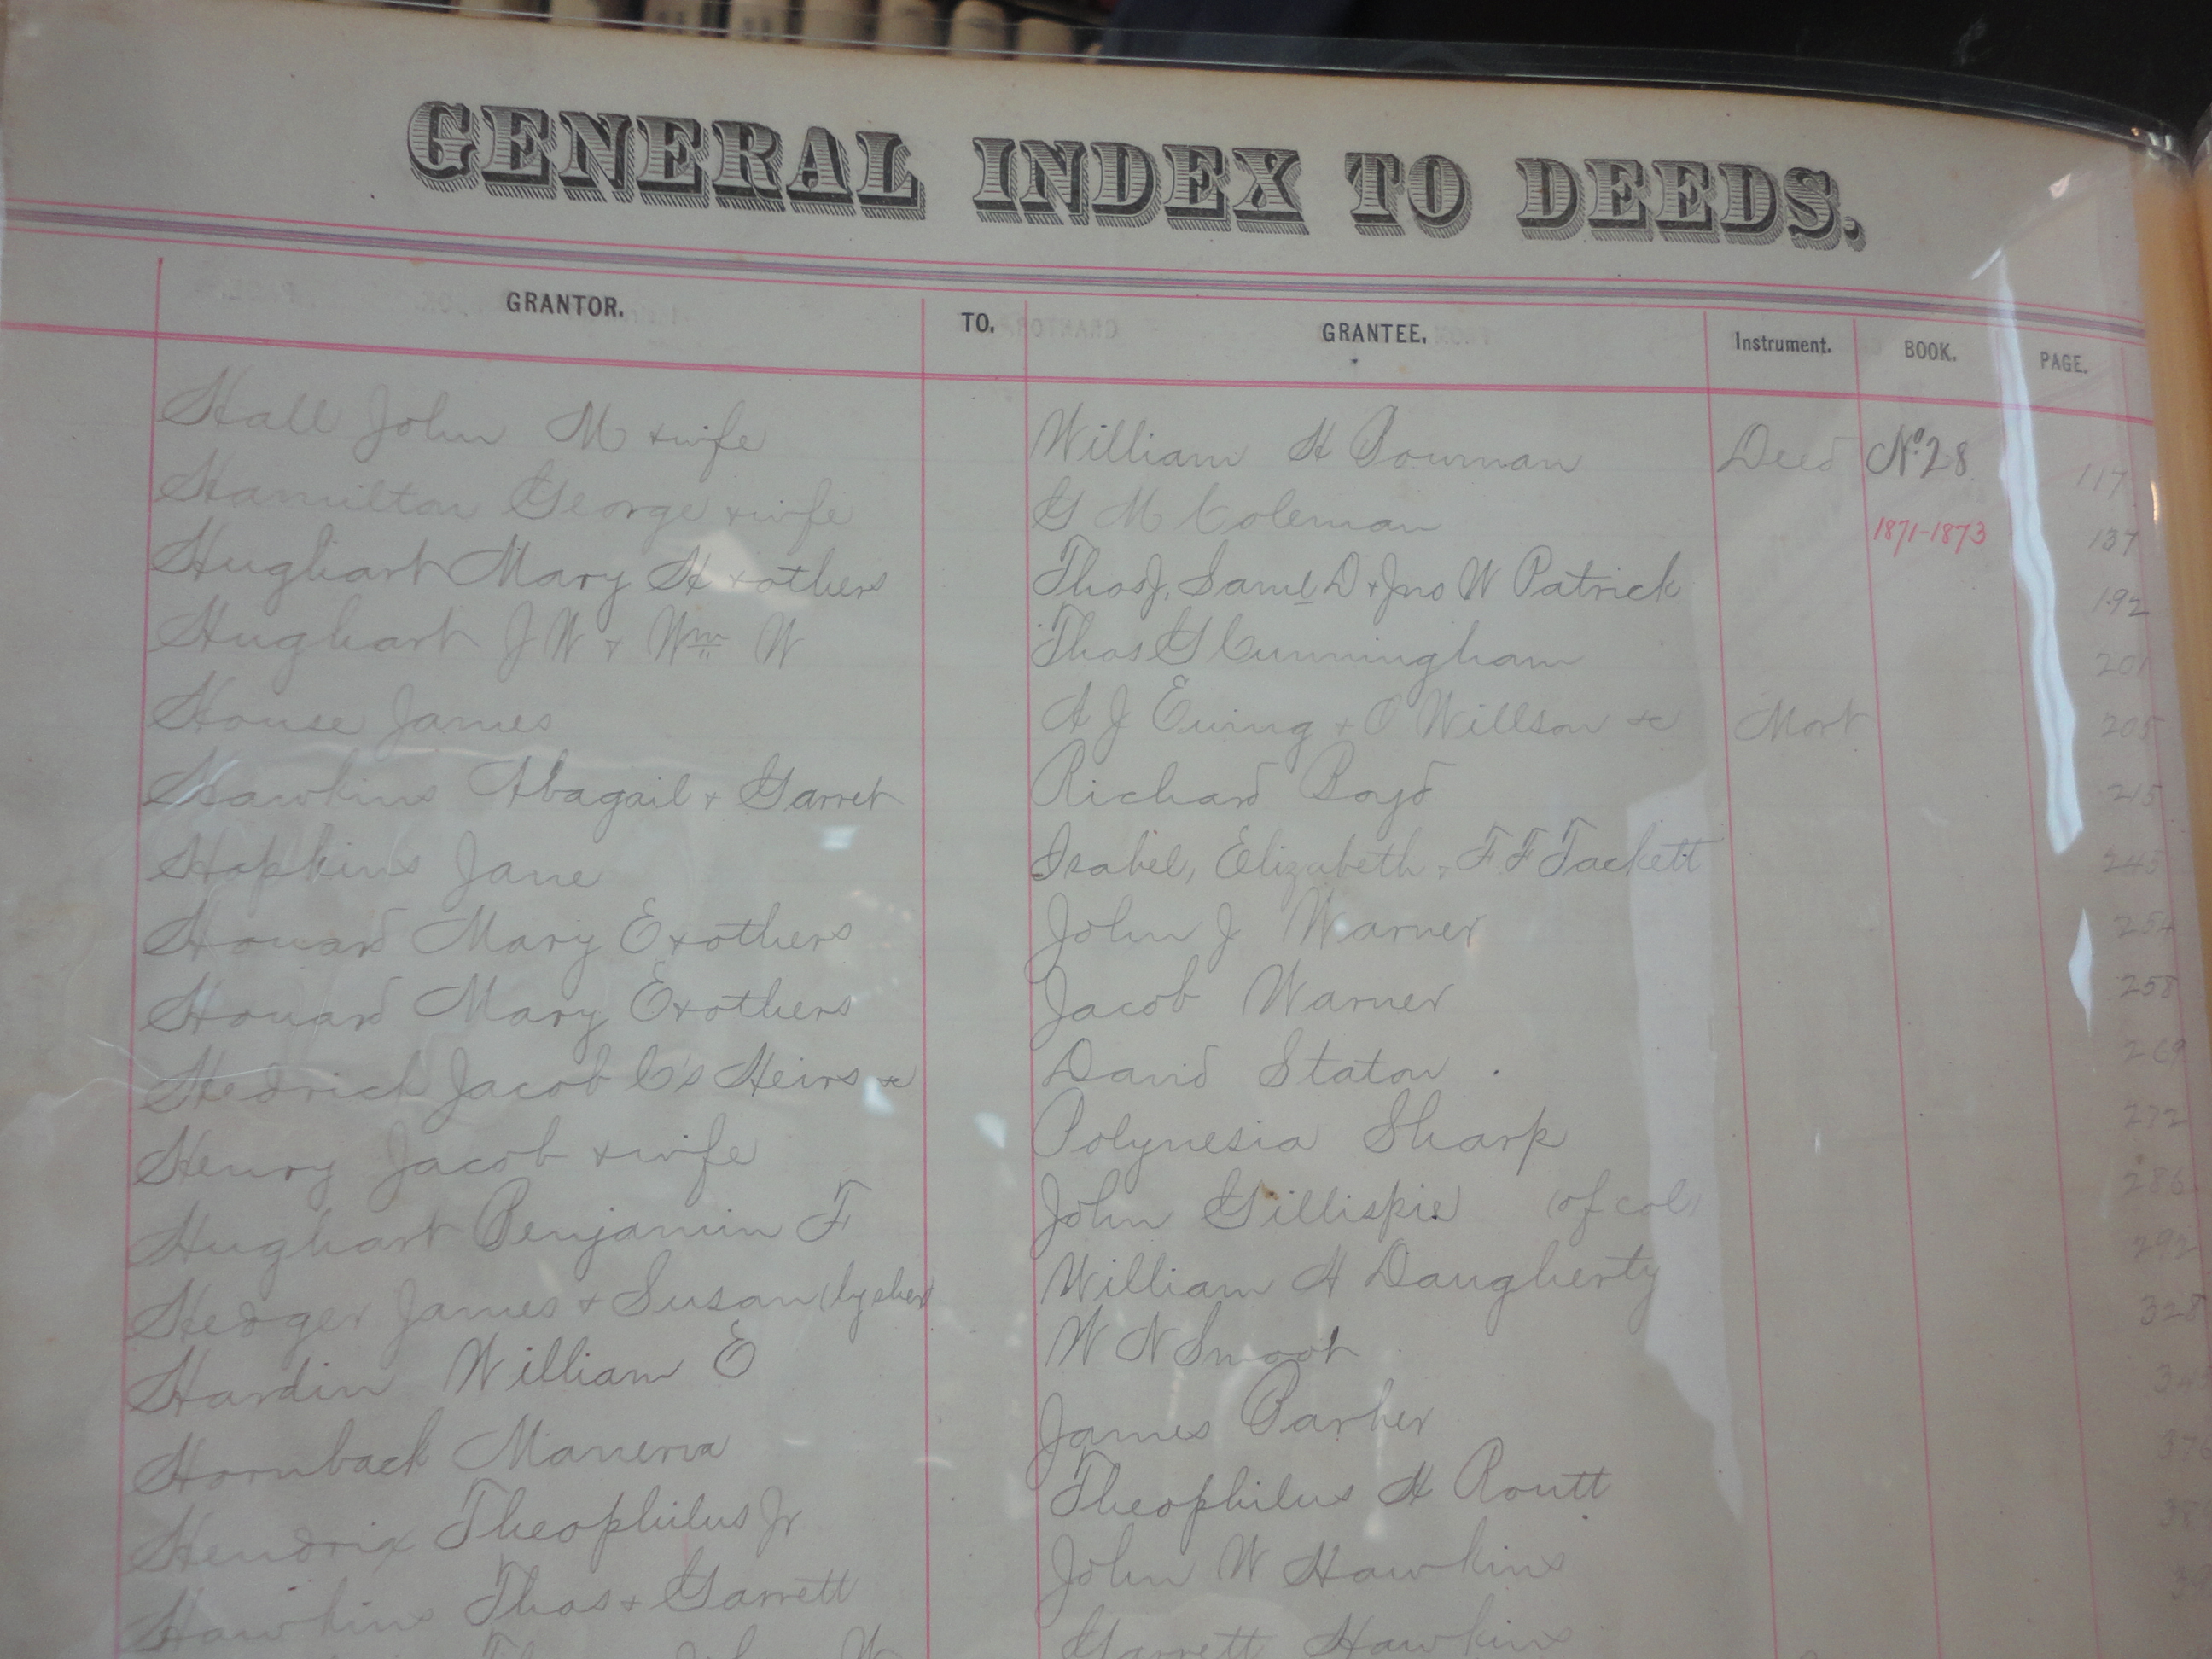 GENERAL INDEX TO DEEDS.
GRANTOR. TO. GRANTEE. Instrument. BOOK. PAGE.
Hall John M & wife William H Bowman Deed No. 28 117
Hamilton George & wife G M Coleman 1871-1873 137
Hughart Mary H & others Thos J, Saml D & Jno W Patrick 192
Hughart J W & Wm W Thos G Cunningham 201
House James A J Ewing & O Willson &c Mort 205
Hawkins Abagail & Garret Richard Boyd 215
Hopkins Jane Isabel, Elizabeth & F F Tackett 245
Howard Mary E & others John J Warner
Howard Mary E & others Jacob Warner 258
Hedrick Jacob C's Heirs &c David Staton 269
Henry Jacob & wife Polynesia Sharp 272
Hughart Benjamin F John Gillispie (of col) 286
Hedger James & Susan (by William H Daugherty 292
Hardin William E W N Smoot 328
Hornback Manerva James Parker
Hendrix Theophilus Jr Theophilus H Routt
Hawkins Thos & Garrett John W Hawkins
Garrett Hawkins